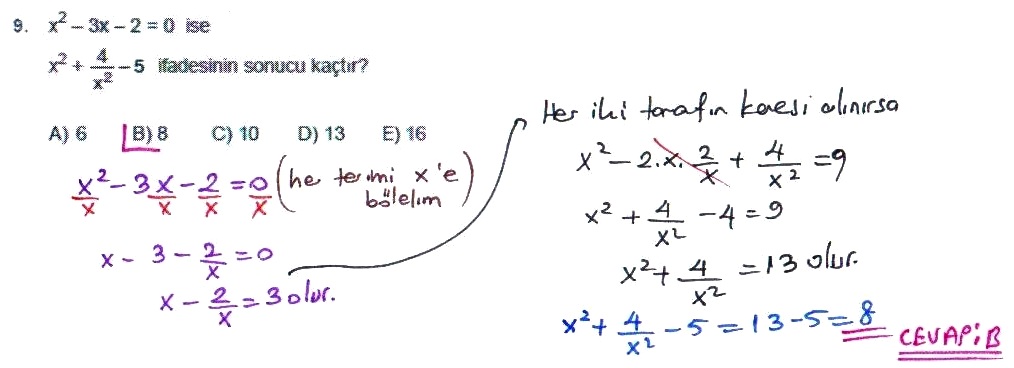 9. x² – 3x – 2 = 0 ise
x² + 4/x² – 5 ifadesinin sonucu kaçtır?
A) 6 B) 8 C) 10 D) 13 E) 16
x²/x – 3x/x – 2/x = 0/x (he terimi x'e bölelim)
x – 3 – 2/x = 0
x – 2/x = 3 olur.
Her iki tarafın karesi alınırsa
x² – 2.x.2/x + 4/x² = 9
x² + 4/x² – 4 = 9
x² + 4/x² = 13 olur.
x² + 4/x² – 5 = 13 – 5 = 8
CEVAP: B